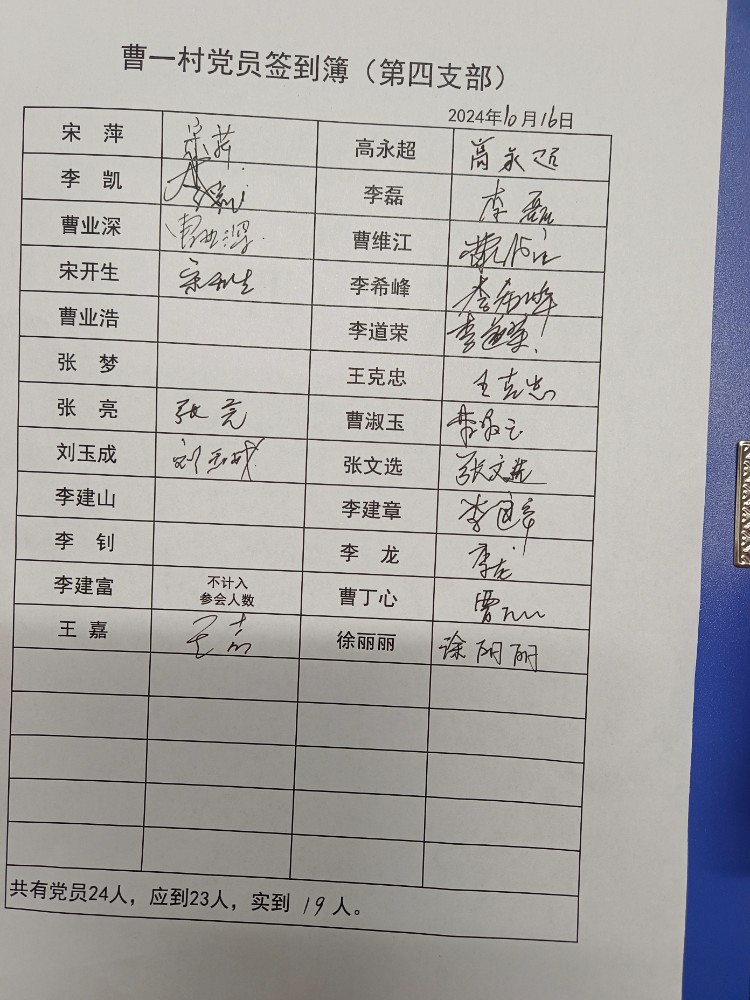 曹一村党员签到簿（第四支部）
2024年10月16日
宋 萍 宋萍 高永超 高永超
李 凯 李凯 李磊 李磊
曹业深 曹业深 曹维江 曹维江
宋开生 宋开生 李希峰 李希峰
曹业浩 李道荣 李道荣
张 梦 王克忠 王克忠
张 亮 张亮 曹淑玉 曹淑玉
刘玉成 刘玉成 张文选 张文选
李建山 李建章 李建章
李 钊 李 龙 李龙
李建富 不计入 曹丁心 曹丁心
参会人数
王 嘉 王嘉 徐丽丽 徐丽丽
共有党员24人，应到23人，实到 19 人。